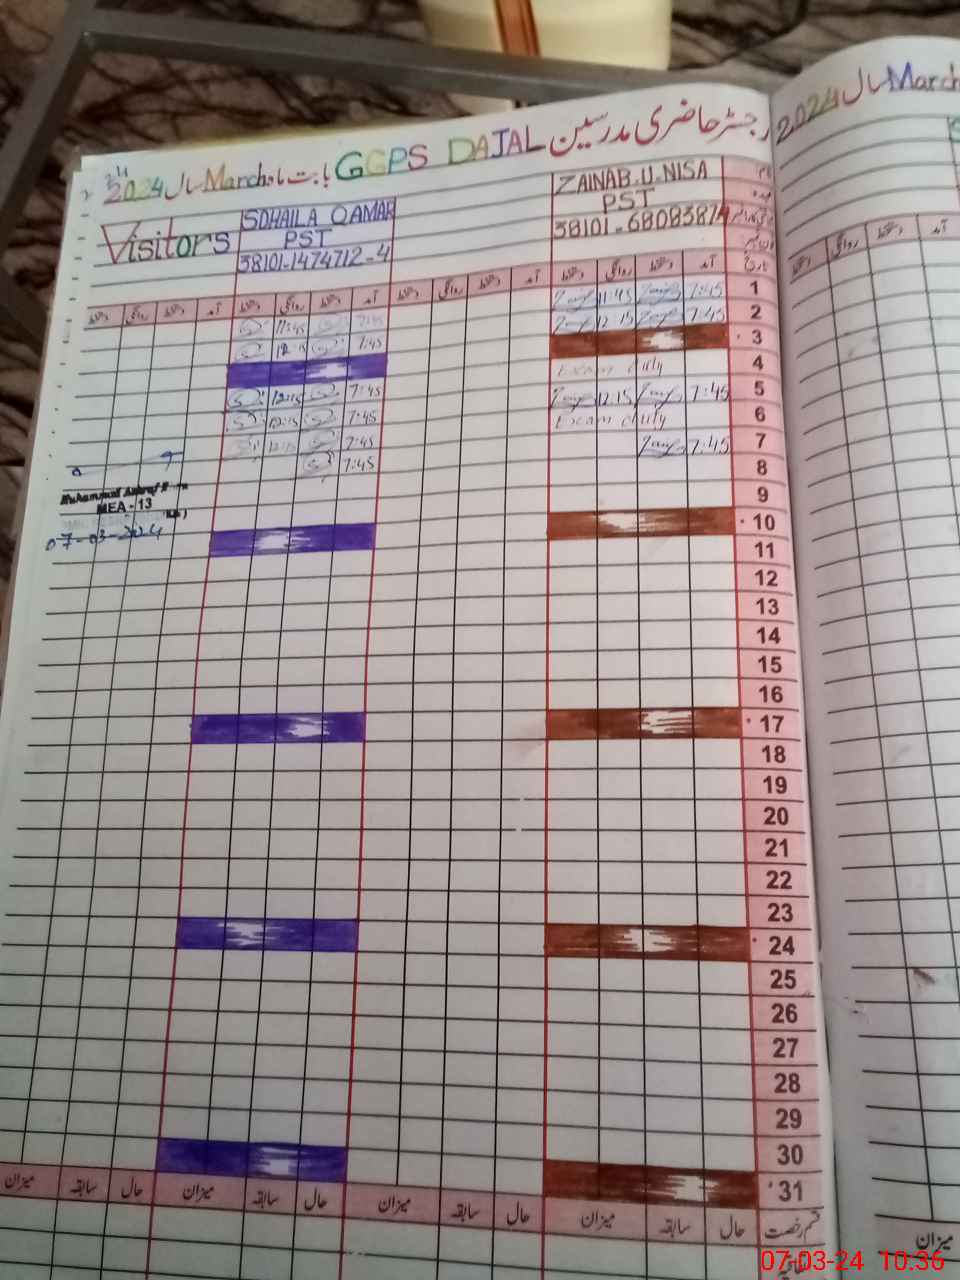 رجسٹر حاضری مدرسین GGPS DAJAL بابت ماہ March سال 2024
2024 سال March
ZAINAB.U.NISA
PST
38101-6808387-4
SOHAILA QAMAR
PST
38101-1474712-4
Visitors
آمد دستخط روانگی دستخط آمد دستخط روانگی دستخط آمد دستخط روانگی دستخط آمد دستخط روانگی دستخط
1 7:45 11:45 7:45 11:45
2 7:45 12:15 7:45 12:15
3
4 Exam duty 7:45 12:15
5 7:45 12:15 7:45 12:15
6 Exam duty 7:45 12:15
7 7:45 7:45
8
9
10
11
12
13
14
15
16
17
18
19
20
21
22
23
24
25
26
27
28
29
30
31
MEA - 13
07-03-2024
قسم رخصت حال سابقہ میزان حال سابقہ میزان حال سابقہ میزان حال سابقہ میزان
میزان
07-03-24 10:36